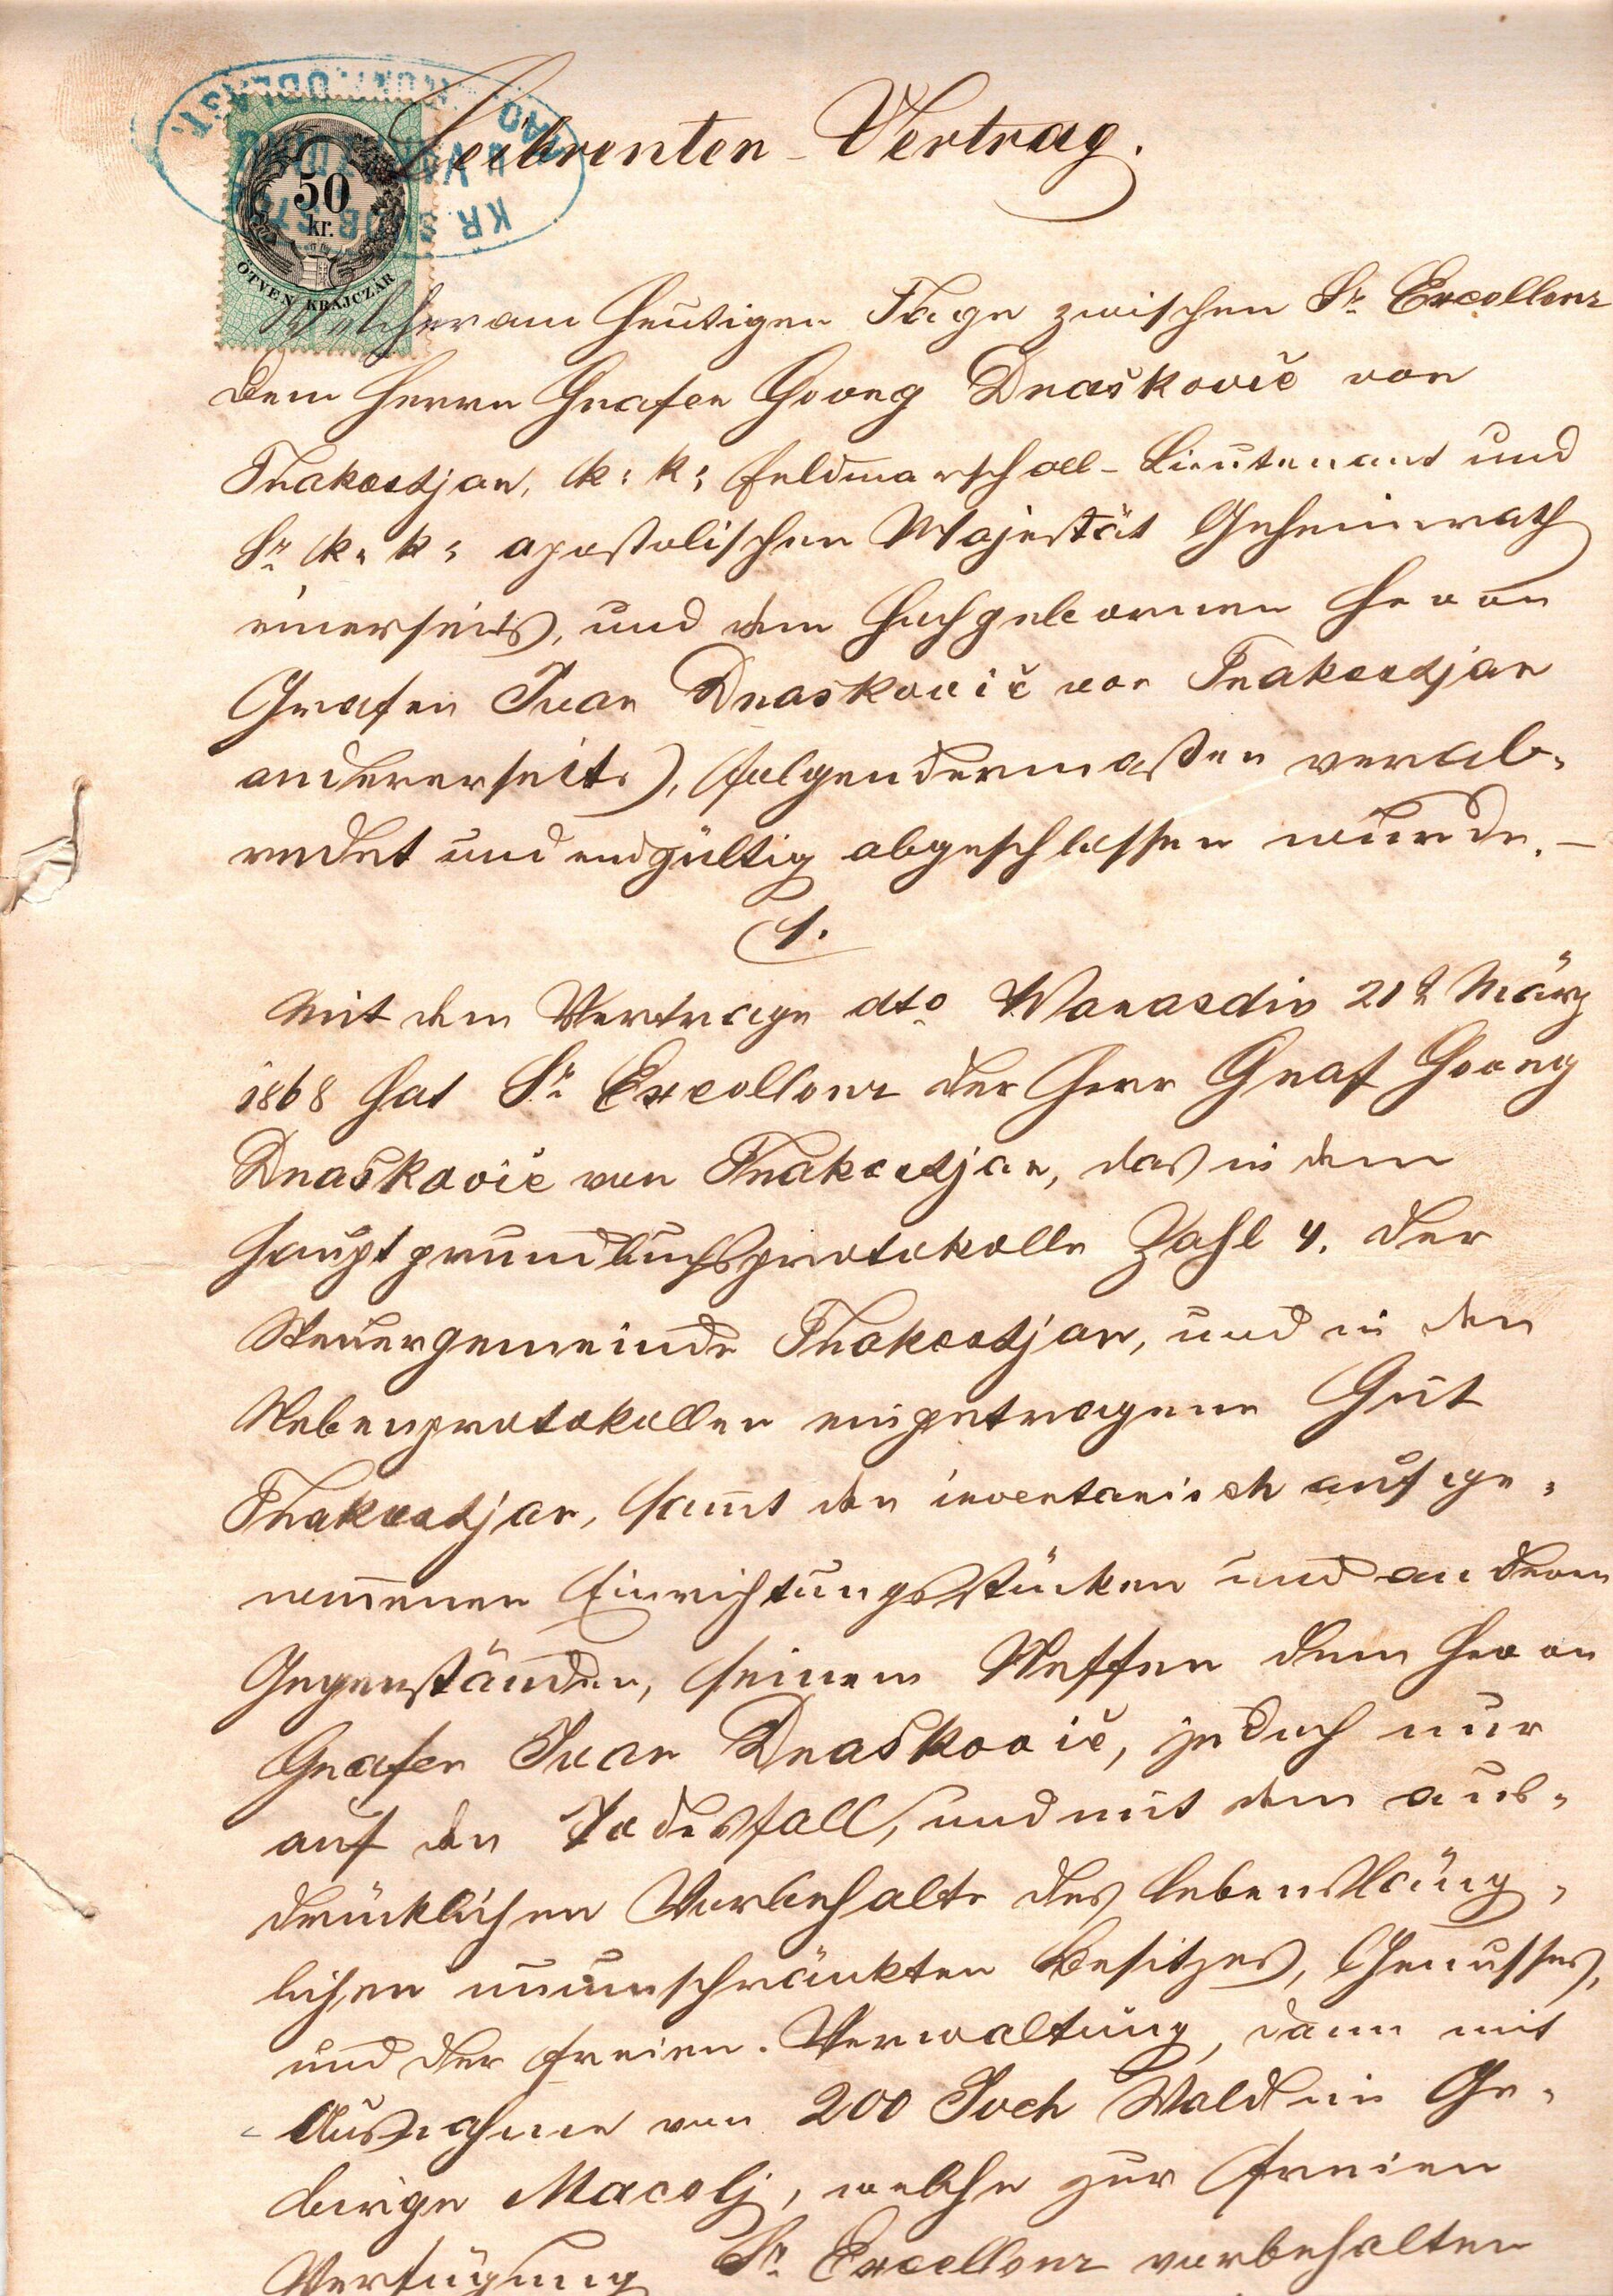 Leibrenten-Vertrag.
50
kr.
ÖTVEN KRAJCZÁR
Welcher am heutigen Tage zwischen Sr. Excellenz
dem Herrn Grafen Georg Draškovič von
Trakostjan, k: k: Feldmarschall-Lieutenant und
Sr. k: k: apostolischen Majestät Geheimrath
einerseits, und dem Hochgebornen Herrn
Grafen Ivan Draskovič von Trakostjan
andererseits, folgendermassen verab-
redet und endgültig abgeschlossen wurde. –
1.
Mit dem Vertrage dto Warasdin 21t März
1868 hat Sr. Excellenz der Herr Graf Georg
Draškovič von Trakostjan, das in dem
Hauptgrundbuchsprotokolle Zahl 4. der
Steuergemeinde Trakostjan, und in den
Nebenprotokollen eingetragene Gut
Trakostjan, samt den inventarisch aufge-
nommenen Einrichtungsstücken und andern
Gegenständen, seinem Neffen dem Herrn
Grafen Ivan Draškovič, jedoch nur
auf den Todesfall, und mit dem aus-
drücklichen Vorbehalte des lebensläng-
lichen unumschränkten Besitzes, Genusses,
und der freien Verwaltung, dann mit
Ausnahme von 200 Joch Wald im Ge-
birge Macelj, welche zur freien
Verfügung Sr. Excellenz vorbehalten